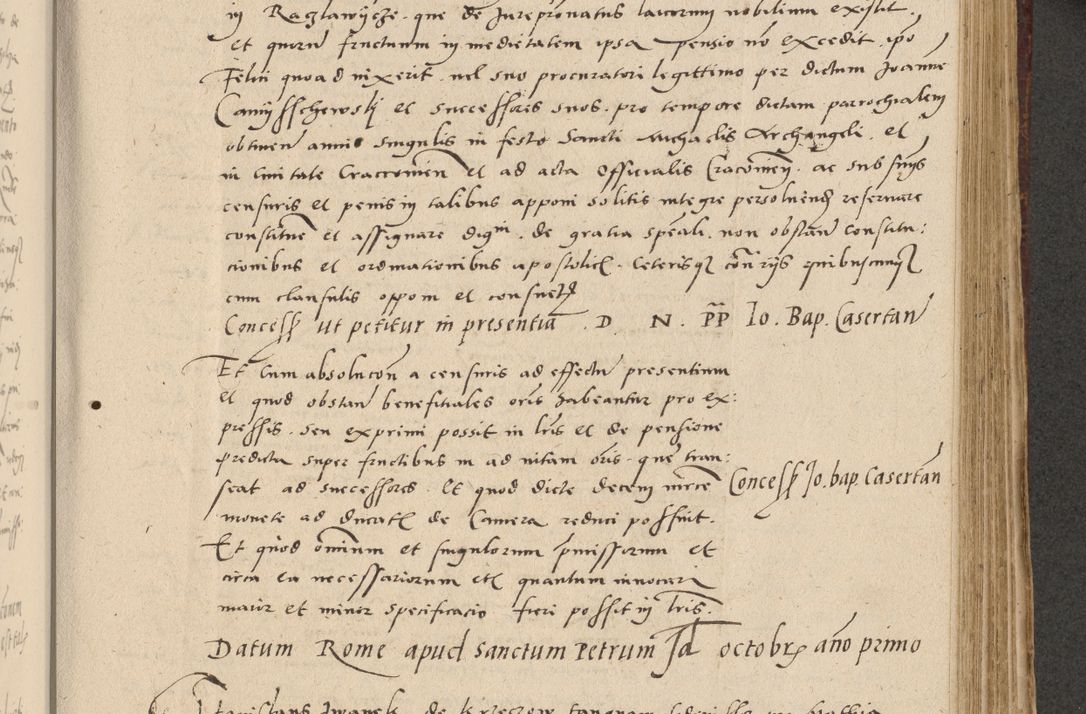 in Raczlawycze que de Jurepronatus laicorum nobilium existit
et quorum fructuum in medietatem ipsa pensio no excedit ipo
Felici quoad vixerit vel suo procuratori legittimo per dictum Joanne
Camysschewskj et successores suos pro tempore dictam parrochialem
obtinen annis singulis in festo Sancti Michaelis Archangeli et
in Civitate Cracovien et ad acta Officialis Cracovien ac sub suis
censuris et penis in talibus apponi solitis integre persolvend reservare
constituere et assignare dig^m de gratia speali non obstan constitu:
cionibus et ordinationibus apostolic Ceterisq con rijs quibuscunq
cum clausulis oppoin et consuet
Concess ut petitur in presentia D N PP Io. Bap. Casertan
Et Cum absolucon a censuris ad effectu presentium
et quod obstan benefitiales oris habeantur pro ex:
pressis seu exprimi possit in lris et de pensione
predicta super fructibus in ad vitam oris que tran:
seat ad successores Et quod dicte decem mrce
monete ad ducat de Camera reduci possint.
Et quod omnium et singulorum pmissorum et
circa ea necessariorum etc quantum innocari
maior et minor specificacio fieri possit in lris
Concess Jo. bap. Casertan
Datum Rome apud sanctum Petrum Id octobr ano primo
de Krzeczow tanquam